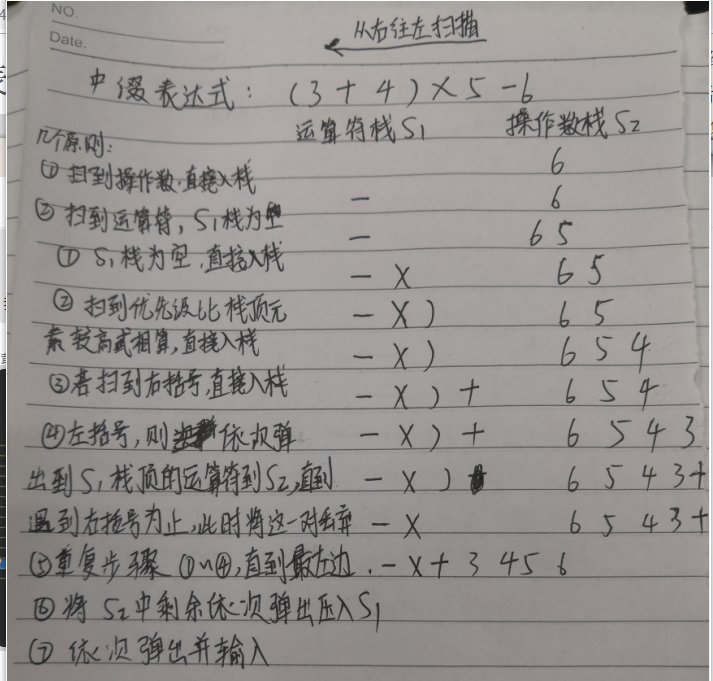 NO.
Date.
从右往左扫描
中缀表达式: (3+4)×5-6
运算符栈S1 操作数栈S2
几个原则:
①扫到操作数,直接入栈 6
- 6
②扫到运算符,S1栈为空
- 6 5
①S1栈为空,直接入栈
- × 6 5
②扫到优先级比栈顶元 - × ) 6 5
素较高或相算,直接入栈 - × ) 6 5 4
③若扫到右括号,直接入栈 - × ) + 6 5 4
④左括号,则依次弹 - × ) + 6 5 4 3
出到S1栈顶的运算符到S2,直到 - × ) 6 5 4 3 +
遇到右括号为止,此时将这一对丢弃 - × 6 5 4 3 +
⑤重复步骤①~④,直到最左边. - × + 3 4 5 6
⑥将S2中剩余依次弹出压入S1
⑦依次弹出并输入